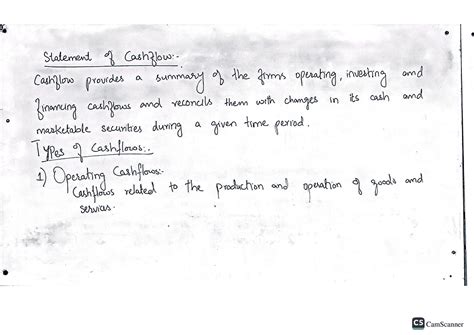 Statement of Cashflow:-
Cashflow provides a summary of the firms operating, investing and
financing cashflows and reconcils them with changes in its cash and
marketable securities during a given time period.
Types of Cashflows:-
1) Operating Cashflows:-
Cashflows related to the production and operation of goods and
services.
CS CamScanner